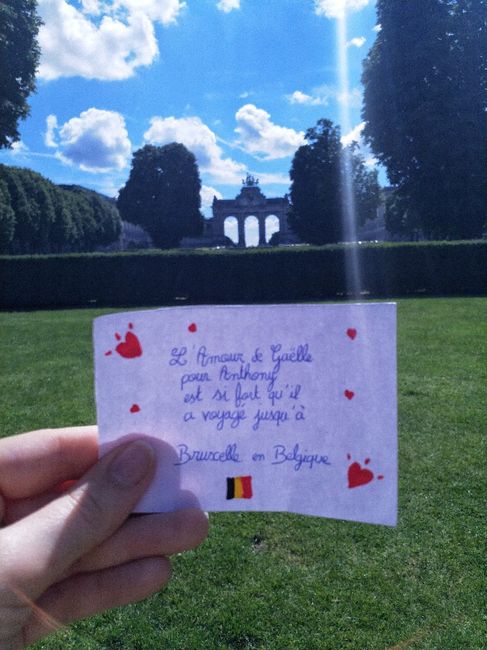 L'Amour de Gaëlle
pour Anthony
est si fort qu'il
a voyagé jusqu'à
Bruxelle en Belgique